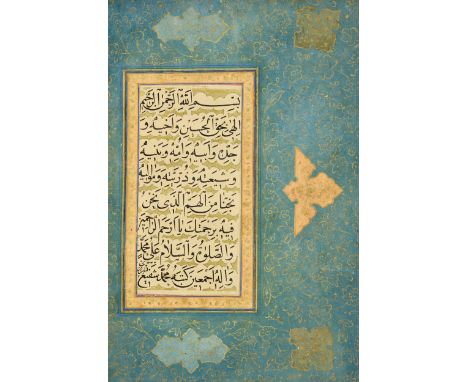 بِسْمِ اللهِ الرَّحْمٰنِ الرَّحِيْمِ
اِلٰهِي بِحَقِّ الْحُسَيْنِ وَاَخِيْهِ وَ
جَدِّهِ وَاَبِيْهِ وَاُمِّهِ وَبَنِيْهِ
وَشِيْعَتِهِ وَذُرِّيَتِهِ وَمَوَالِيْهِ
نَجِّنَا مِنَ الْهَمِّ الَّذِي نَحْنُ
فِيْهِ بِرَحْمَتِكَ يَا اَرْحَمَ الرَّاحِمِيْنَ
وَالصَّلٰوةُ وَالسَّلَامُ عَلٰى مُحَمَّدٍ
وَاٰلِهِ اَجْمَعِيْنَ كَتَبَهُ مُحَمَّد شَفِيْع